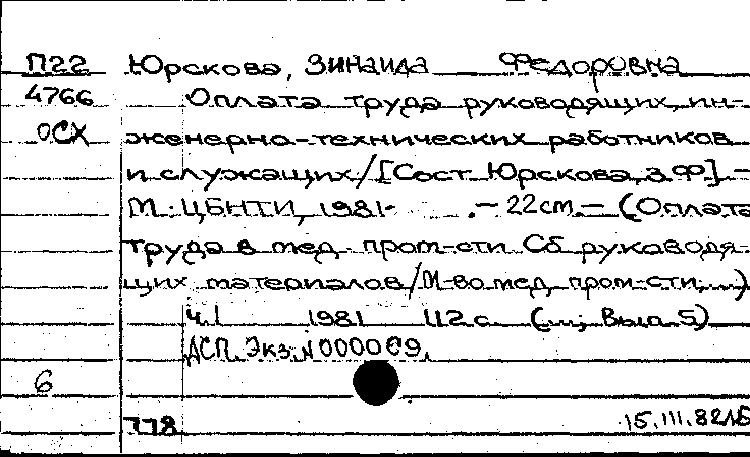 П22 Юрскова, Зинаида Федоровна
4766 Оплата труда руководящих, ин-
ОСХ женерно-технических работников
и служащих/[Сост. Юрскова З.Ф]. -
М.: ЦБНТИ, 1981- . - 22см. - (Оплата
труда в мед. пром-сти. Сб руководя-
щих материалов/М-во мед. пром-сти; ...)
Ч.1 1981 112 с. (...; Вып. 5)
ДСП. Экз. N 000009.
6
778 15.III.82